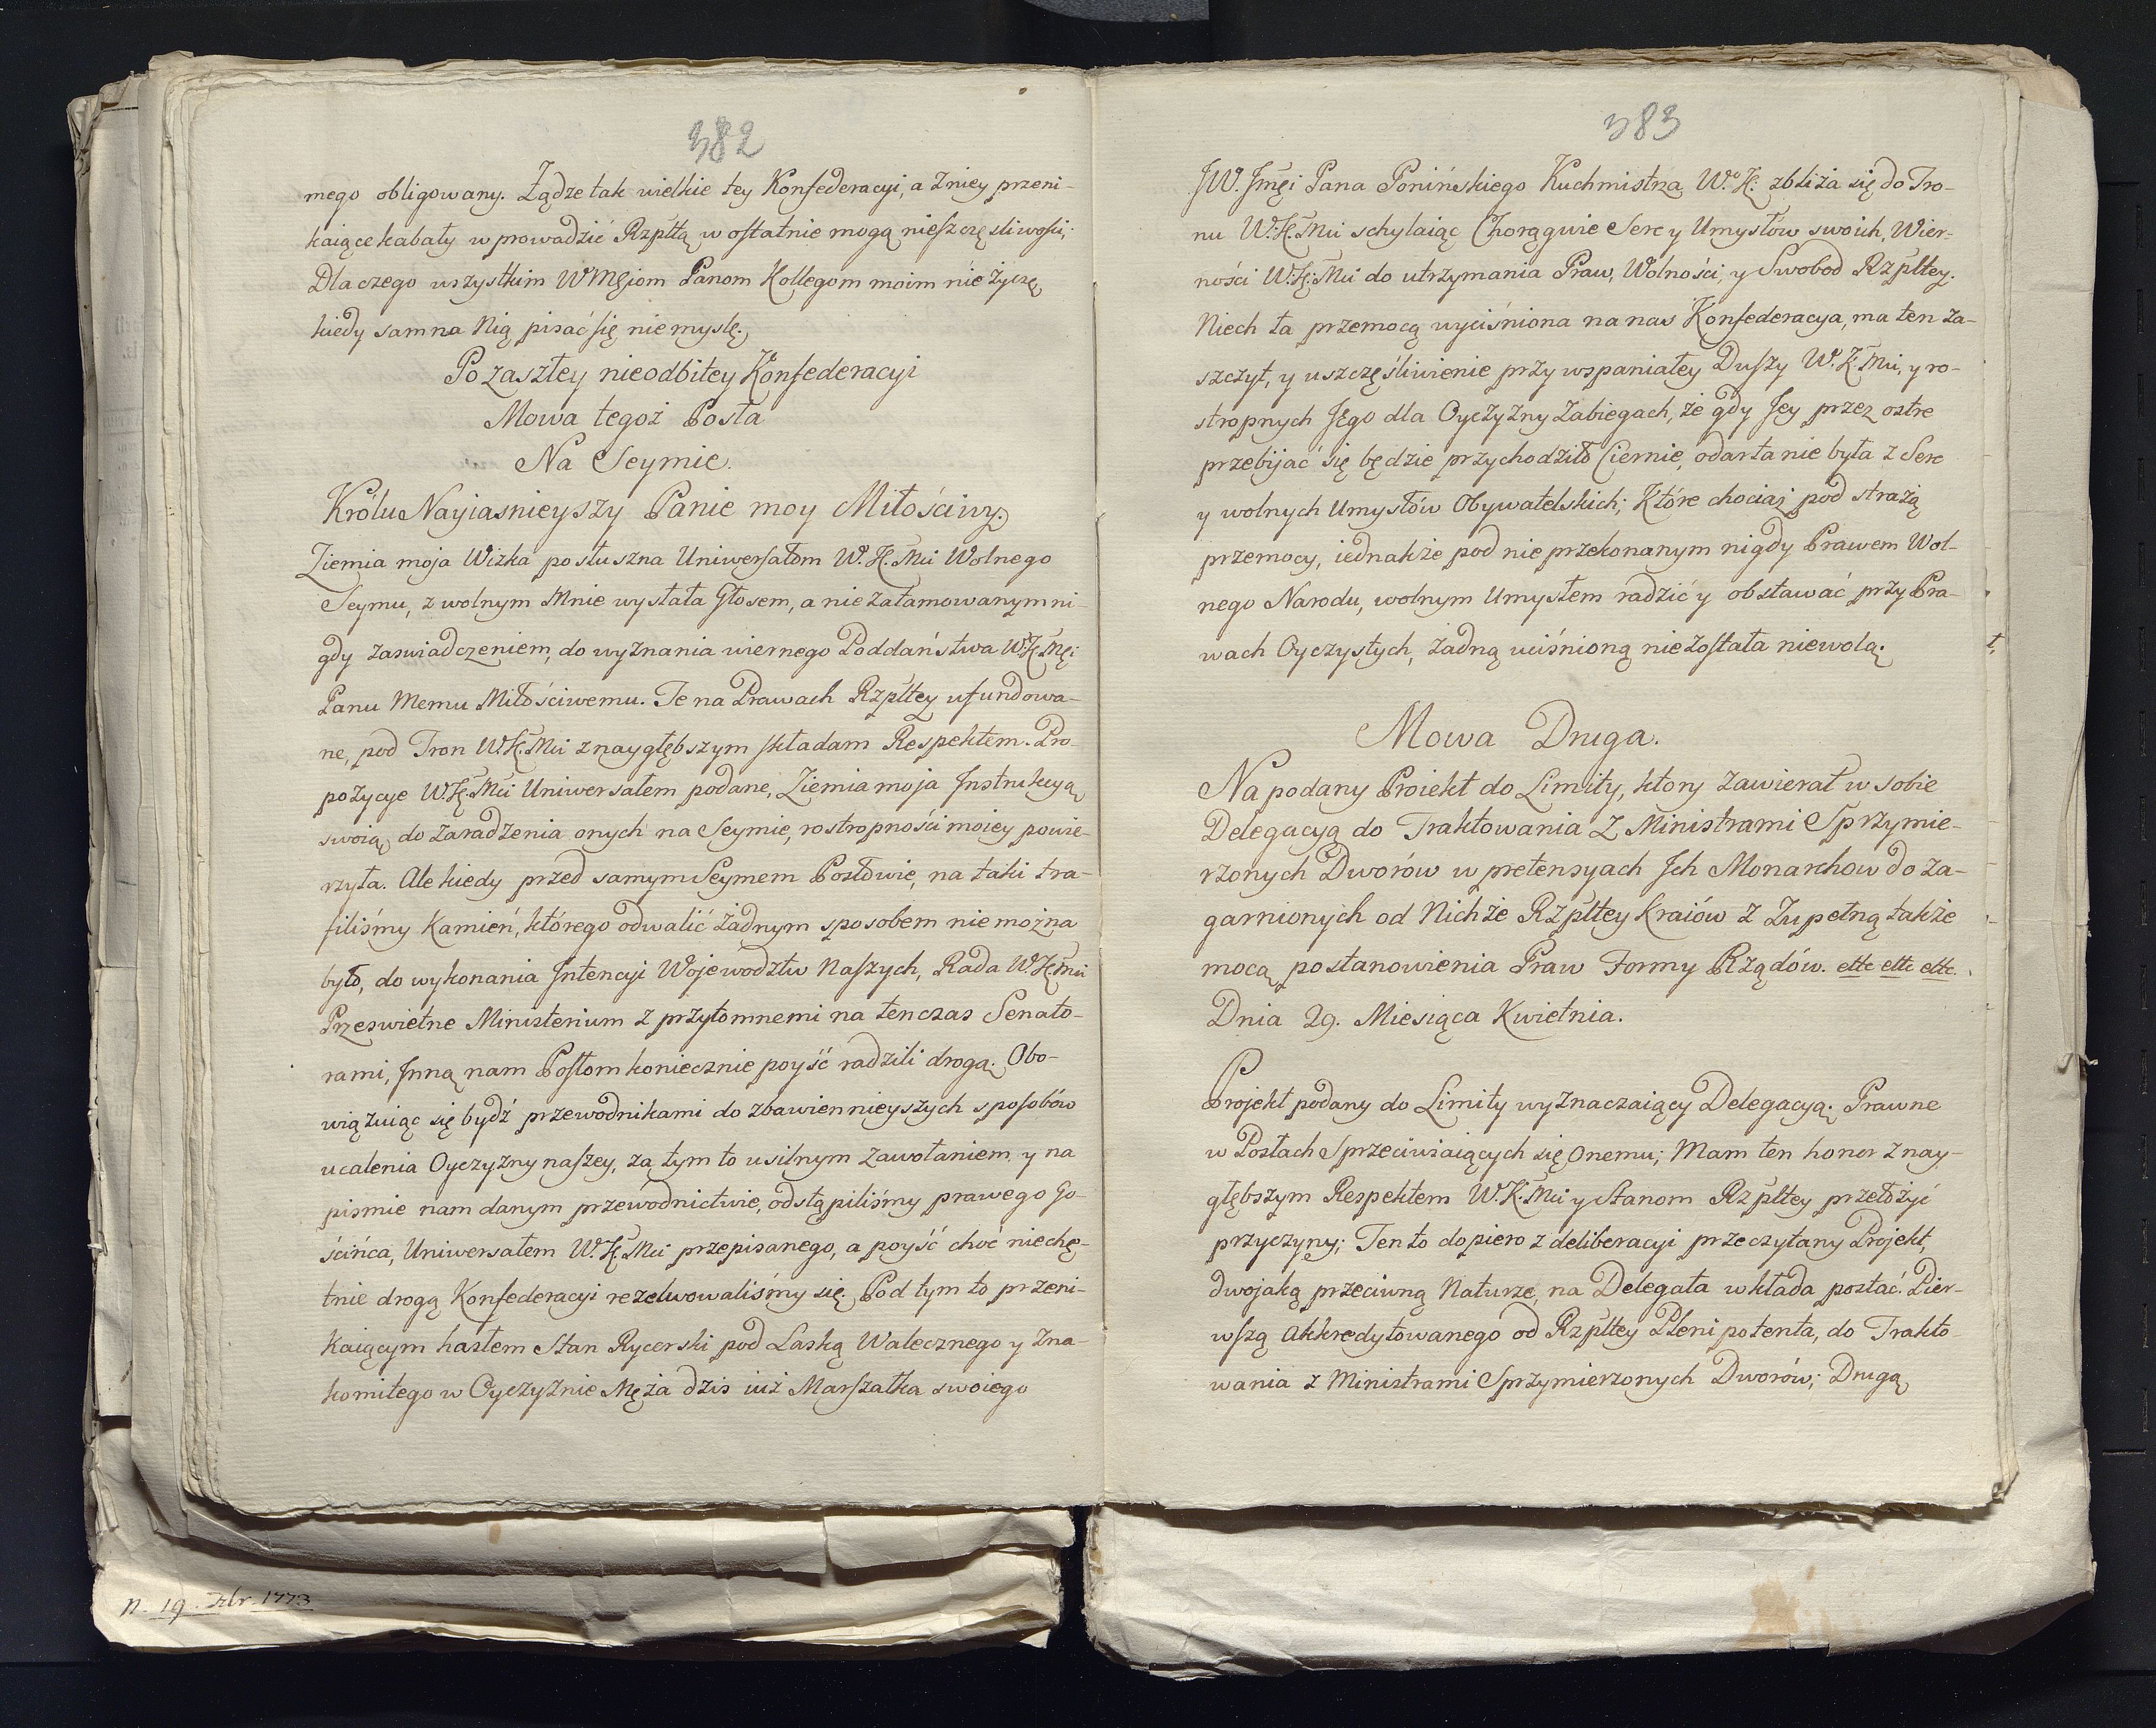 382
mego obligowany. Żądze tak wielkie tey Konfederacyi, a z niey przeni-
kaiące kabały wprowadzić Rzpltą w ostatnie mogą nieszczęśliwości,
Dlaczego wszystkim WMęiom Panom Kollegom moim nie życzę,
kiedy sam na Nią pisać się nie myslę.
Po zaszłey nieodbitey Konfederacyi
Mowa tegoż Posła
Na Seymie.
Królu Nayiasnieyszy Panie moy Miłościwy.
Ziemia moja Wizka posłuszna Uniwersałom W. K. Mci Wolnego
Seymu, z wolnym Mnie wysłała Głosem, a nie załamowanym ni-
gdy zaswiadczeniem, do wyznania wiernego Poddaństwa W. K. Męi
Panu Memu Miłościwemu. Te na Prawach Rzpltey ufundowa-
ne, pod Tron W. K. Mci z naygłębszym składam Respektem. Pro-
pozycye W. K. Mci Uniwersałem podane, Ziemia moja Instrukcyą
swoią, do zaradzenia onych na Seymie, rostropności moiey powie-
rzyła. Ale kiedy przed samym Seymem Posłowie, na taki tra-
filiśmy Kamień, którego odwalić żadnym sposobem nie można
było, do wykonania Intencyi Wojewodztw Naszych, Rada W. K. Mci
Przeswietne Ministerium z przytomnemi na tenczas Senato-
rami, Inną nam Posłom koniecznie poyść radzili drogą. Obo-
wiązuiąc się bydź przewodnikami do zbawiennieyszych sposobów
ucalenia Oyczyzny naszey, za tym to usilnym zawołaniem y na
pismie nam danym przewodnictwie, odstąpiliśmy prawego Go-
ścińca, Uniwersałem W. K. Mci przepisanego, a poyść choć niechę-
tnie drogą Konfederacyi rezelwowaliśmy się. Pod tym to przeni-
kaiącym hasłem Stan Rycerski pod Laską Walecznego y Zna-
komitego w Oyczyznie Męża dzis iuż Marszałka swoiego
n. 19. Xbr. 1773
383
JW. Jmęi Pana Ponińskiego Kuchmistrza W.o K. zbliża się do Tro-
nu W. K. Mci schylaiąc Chorągwie Serc y Umysłów swoich, Wier-
ności W. K. Mci do utrzymania Praw, Wolności, y Swobod Rzpltey.
Niech ta przemocą wyciśniona na nas Konfederacya, ma ten za-
szczyt, y uszczęśliwienie przy wspaniałey Duszy W. K. Mci, y ro-
stropnych Jego dla Oyczyzny Zabiegach, że gdy Jey przez ostre
przebijać się będzie przychodziło Ciernie, odarta nie była z Serc
y wolnych Umysłów Obywatelskich; Które chociaż pod strażą
przemocy, iednakże pod nie przekonanym nigdy Prawem Wol-
nego Narodu, wolnym Umysłem radzić y obstawać przy Pra-
wach Oyczystych, żadną uciśnioną nie została niewolą.
Mowa Druga.
Na podany Proiekt do Limity, ktory zawierał w sobie
Delegacyą do Traktowania z Ministrami Sprzymie-
rzonych Dworów w pretensyach Ich Monarchow do za-
garnionych od Nichże Rzpltey Kraiów z zupełną także
mocą postanowienia Praw Formy Rządów. ettc ettc ettc.
Dnia 29. Miesiąca Kwietnia.
Projekt podany do Limity wyznaczaiący Delegacyą. Prawne
w Posłach Sprzeciwiaiących się onemu; Mam ten honor z nay-
głębszym Respektem W. K. Mci y Stanom Rzpltey przełożyć
przyczyny; Ten to dopiero z deliberacyi przeczytany Projekt,
dwojaką przeciwną Naturze, na Delegata wkłada postać. Pier-
wszą akkredytowanego od Rzpltey Plenipotenta, do Trakto-
wania z Ministrami Sprzymierzonych Dworów; Drugą